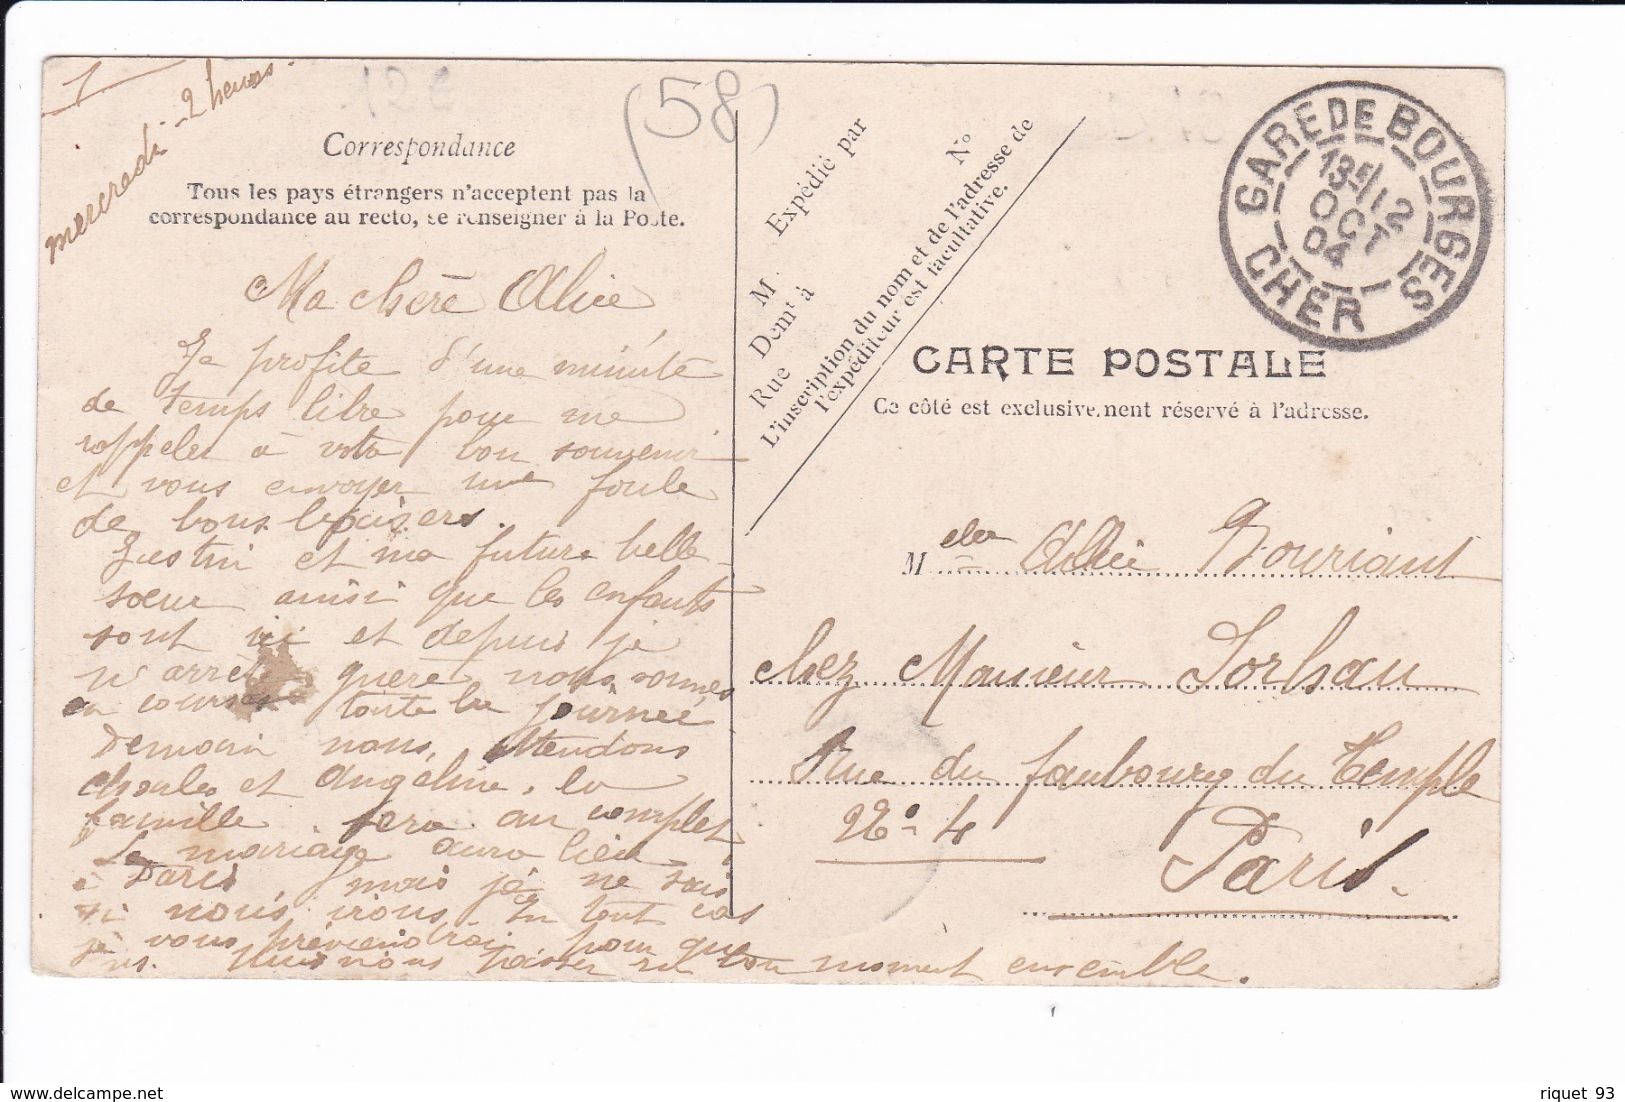 mercredi - 2 heures.
(58)
Correspondance
Tous les pays étrangers n'acceptent pas la
correspondance au recto, se renseigner à la Poste.
Ma chère Alice
Je profite d'une minute
de temps libre pour me
rappeler à votre bon souvenir
et vous envoyer une foule
de bons baisers.
Justin et ma future belle-
sœur ainsi que les enfants
sont ici et depuis je
n'arrête guère nous sommes
en course toute la journée
Demain nous attendons
Charles et Angéline, la
famille sera au complet,
Le mariage aura lieu
à Paris, mais je ne sais
si nous irons. En tout cas
je vous préviendrai pour que
ns. puissions passer un bon moment ensemble.
Expédié par
M.
Demt à
Rue
No
L'inscription du nom et de l'adresse de
l'expéditeur est facultative.
GARE DE BOURGES
13E/12
OCT
04
CHER
CARTE POSTALE
Ce côté est exclusivement réservé à l'adresse.
Melle Alice Bouriant
chez Monsieur
Rue du faubourg du Temple
Paris.
riquet 93